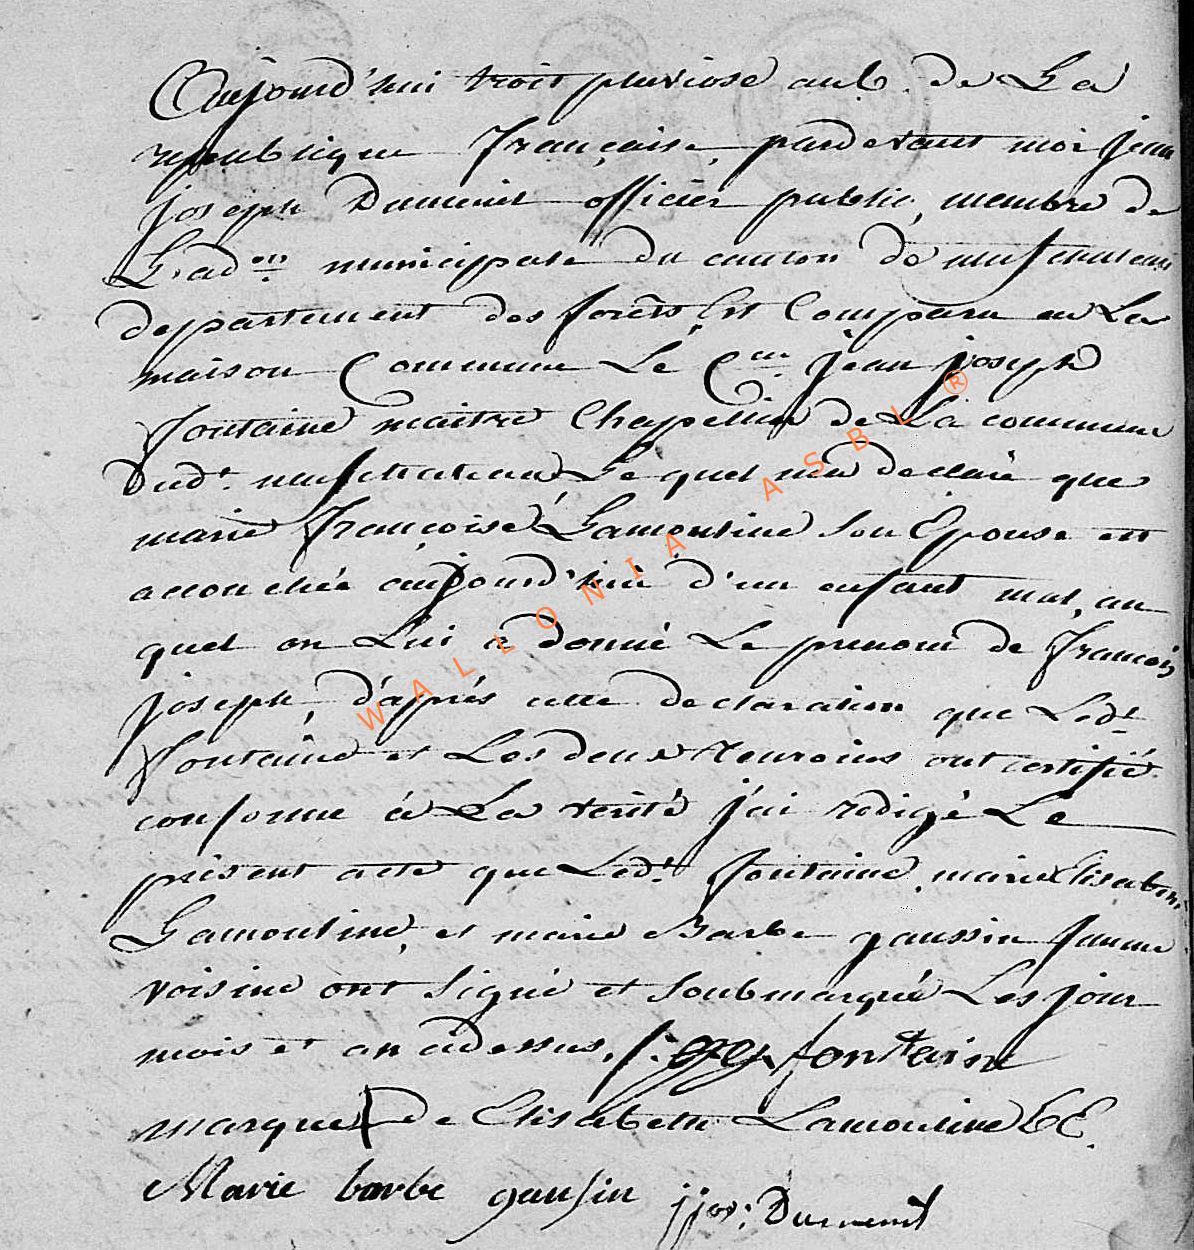 Aujourd'hui trois pluviose an 6. de La
republique française, pardevant moi jean
joseph Dumenil officier public, membre de
L'ad.on municipale du canton de neufchateau
departement des forêts Est Comparu en La
maison Commune Le C.en jean joseph
fontaine maitre Chapellier de La commune
dud.t neufchateau Lequel m'a declaré que
marie françoise Lamouline son Epouse est
accouchée aujourd'hui d'un enfant mal, au
quel on Lui a donné Le prenom de francois
joseph, d'après cette declaration que Led.t
fontaine et Les deux temoins ont certifié
conforme à La verité j'ai redigé Le
present acte que Led.t fontaine, marie Elisabeth
Lamouline, et marie Barbe gaussin femme
voisine ont signé et soubmarqué Les jour
mois et an cidessus. fontaine
marque de Elisabeth Lamouline
Marie barbe gausin jjos: Dumenil
WALLONIA ASBL ®